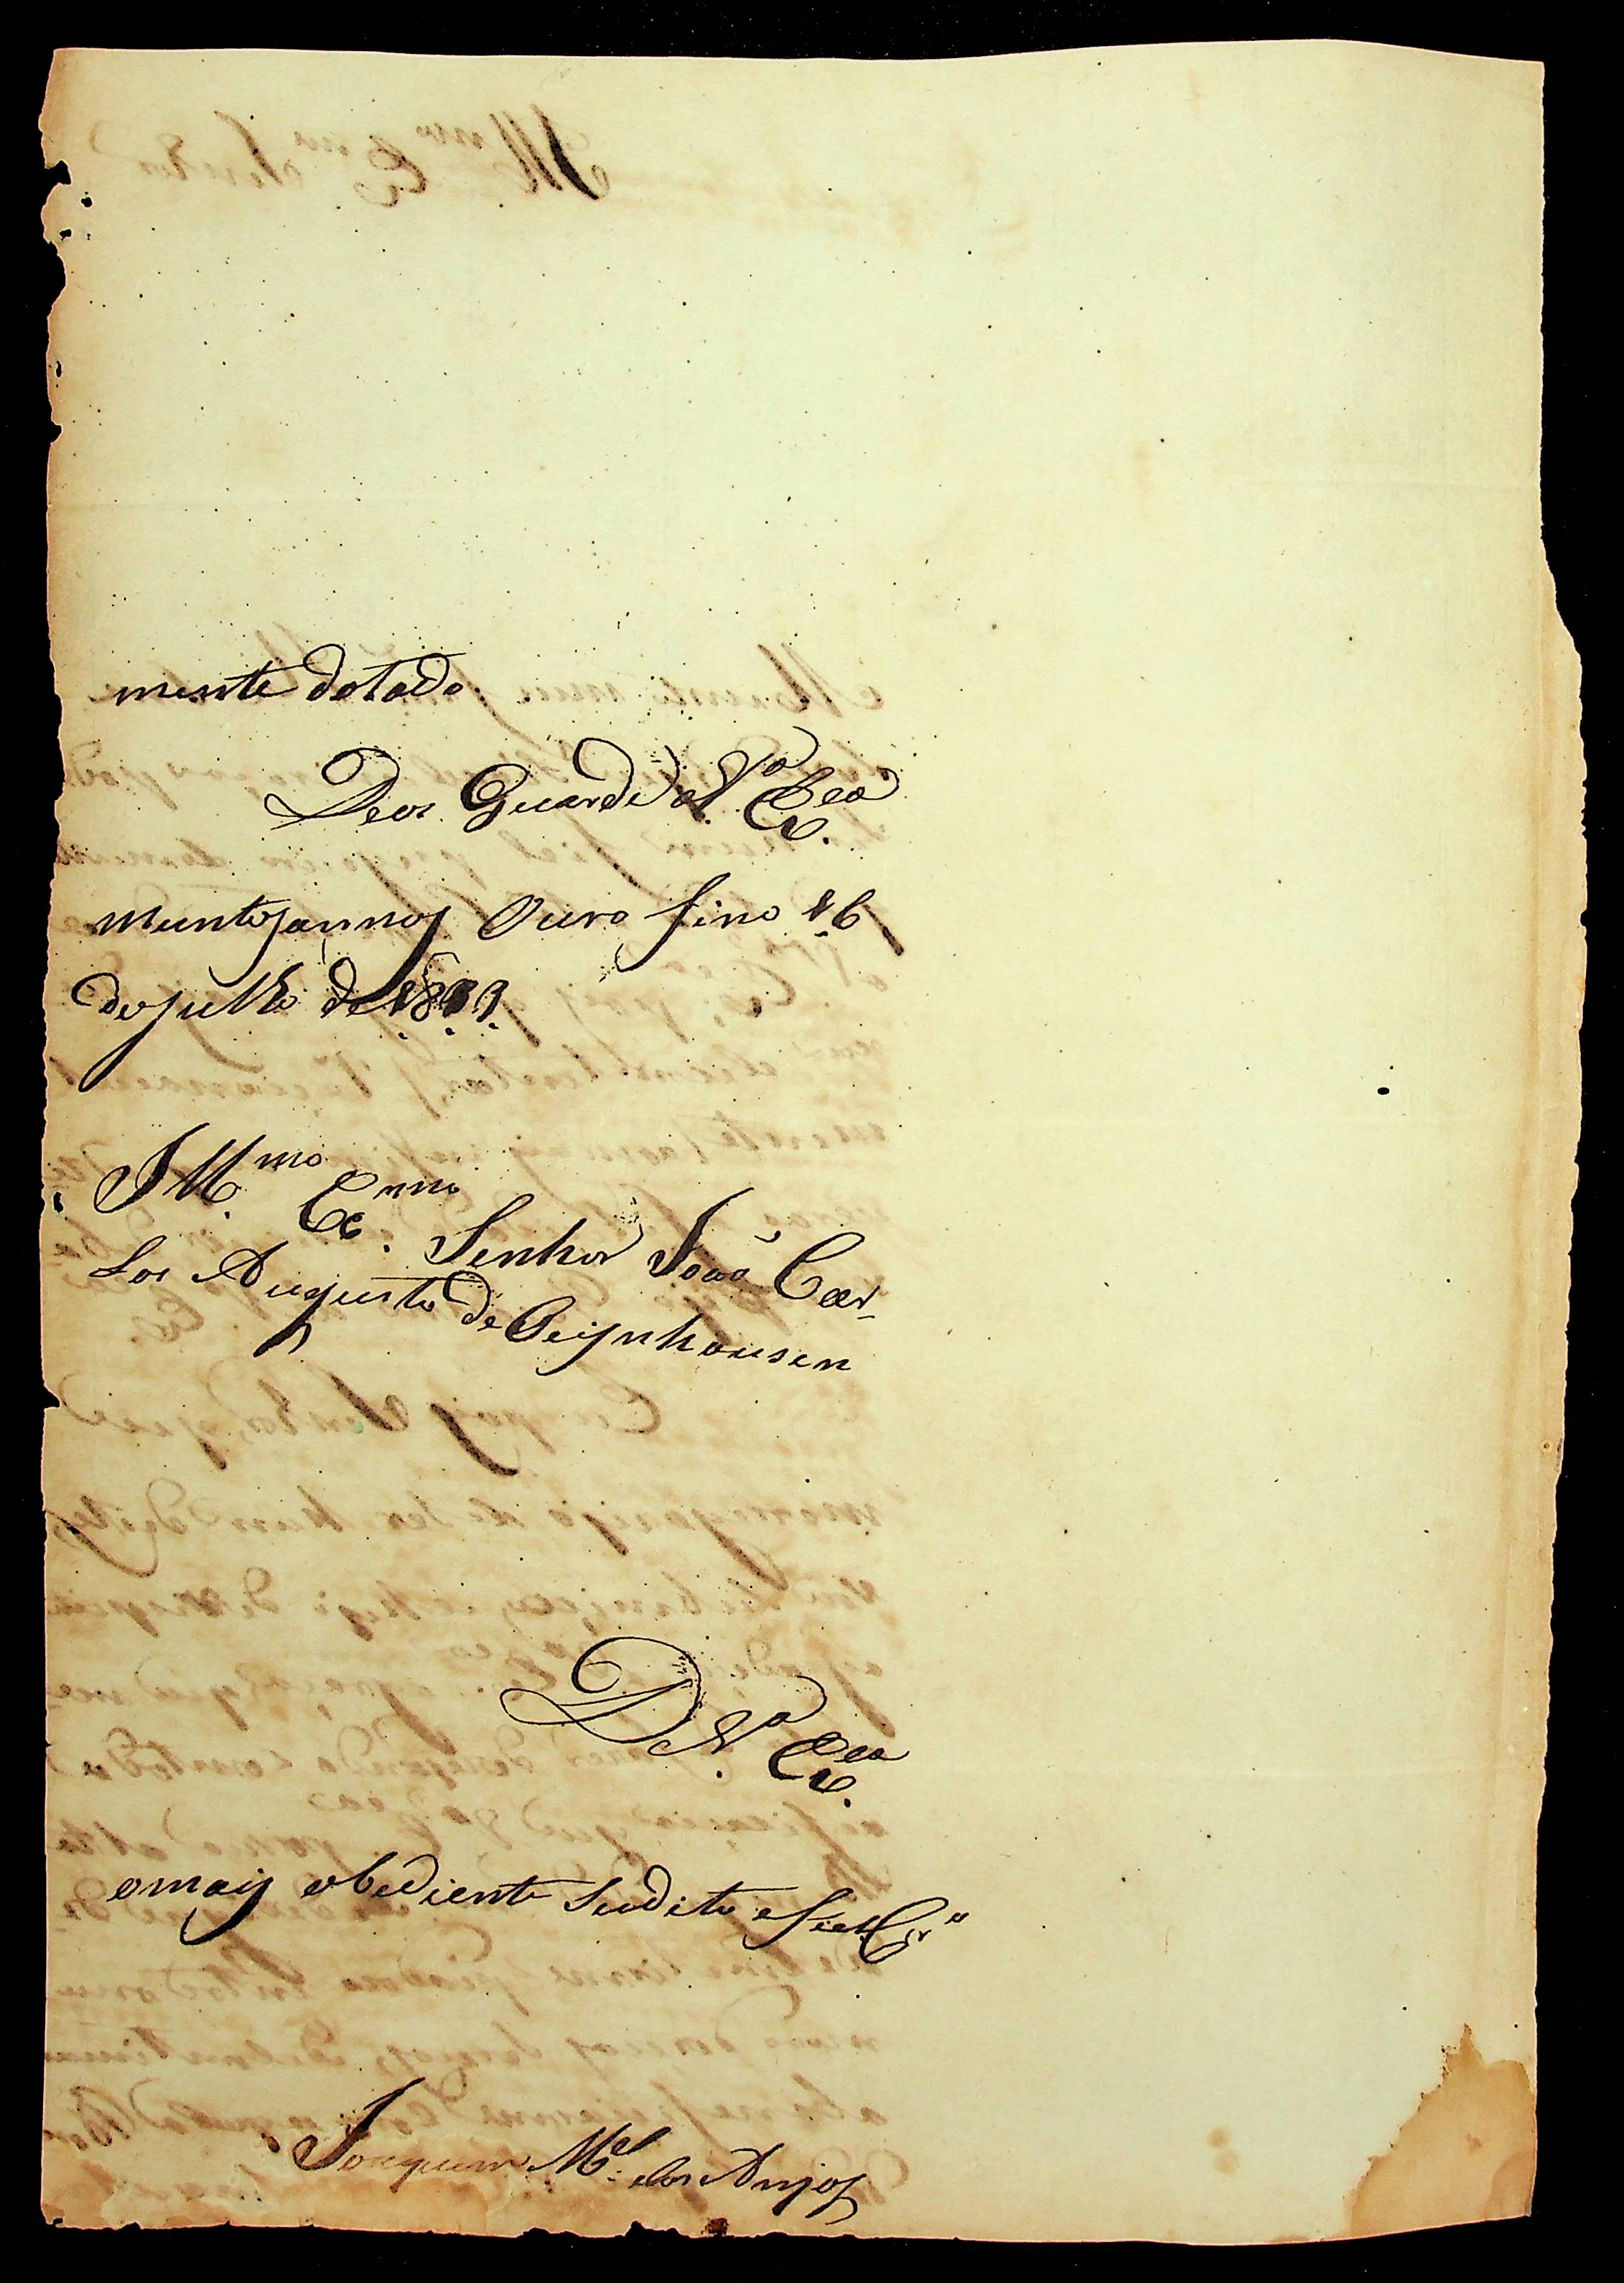 mente dotado
Deos Guarde a V.ª Ex.cia
muntos annos Ouro fino 16
de julho de 1819.
Ill.mo Ex.mo Senhor João Car-
los Augusto de Oeijnhausen
De V.ª Ex.cia
o mais obediente Sudito e fiel Cr.º
Joaquim M.el dos Anjos